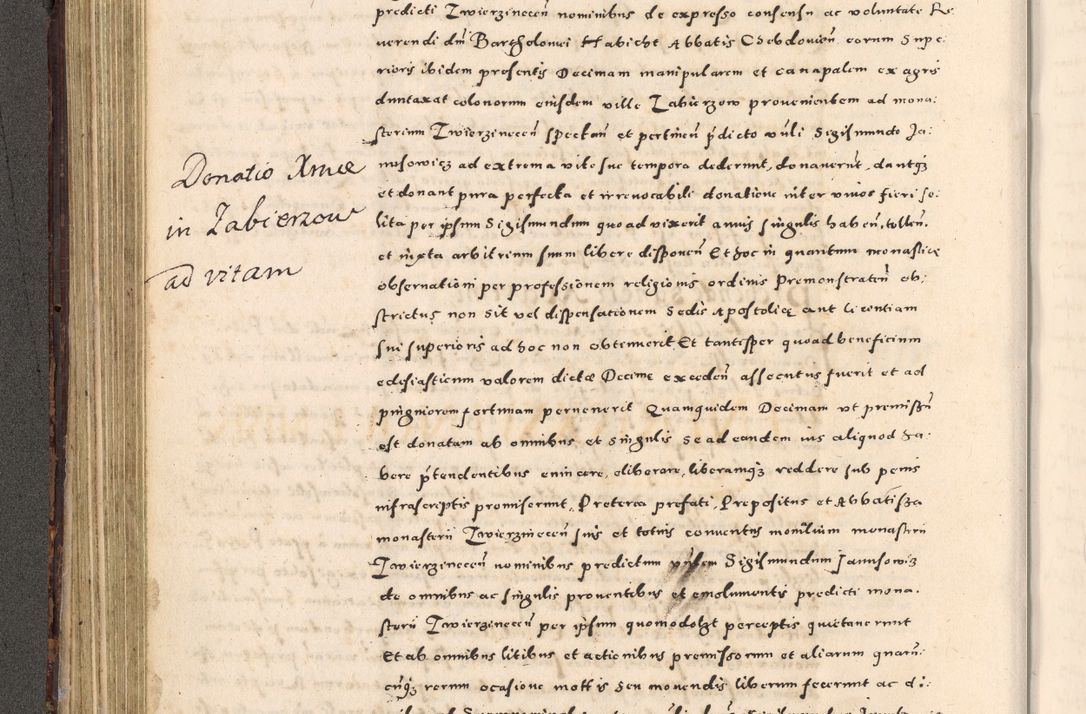 predicti Zwierzinecen̄ nominibus de expresso consensu ac voluntate Re
verendi dn̄i Bartholomei Habicht Abbatis Chebdovien̄ eorum supe:
rioris ibidem presentis Decimam manipularem et canapalem ex agris
duntaxat colonorum eiusdem ville Zabierzow provenientem ad mona:
sterium Zwierzinecen̄ spectan̄ et pertinen̄ p̄dicto vn̄li Sigismundo Ja:
nusowicz ad extrema vite sue tempora dederunt, donaverūt, dantqz
et donant pura perfecta et irrevocabili donatione inter vivos fieri so:
lita per ipsum Sigismundum quoad vixerit annis singulis haben̄, tollen̄,
et iuxta arbitrium suum libere disponen̄ Et hoc in quantum monasticę
observationi per professionem religionis ordinis Premonstraten̄ ob:
strictus non sit vel dispensationem Sedis Apostolicę aut licentiam
sui superioris ad hoc non obtinuerit Et tantisper quoad beneficium
ecclesiasticum valorem dictæ Decimę exceden̄ assecutus fuerit et ad
pinguiorem fortunam pervenerit Quamquidem Decimam vt premissn̄
est donatam ab omnibus et singulis se ad eandem ius aliquod ha:
bere p̄tendentibus evincere, eliberare, liberamqz reddere sub penis
infrascriptis promiserunt, Preterea prefati, Prepositus et Abbatissa
monasterii Zwierzinecen̄ suis et totius conventus monialium monasterii
Zwierzinecen̄ nominibus predictum vn̄lem Sigismundum Janusowicz
de omnibus ac singulis proventibus et emolumentis predicti mona:
sterii Zwierzinecen̄ per ipsum quomodolzt perceptis quietaverunt
Et ab omnibus litibus et actionibus premissorum et aliarum quarū:
cūqz rerum ocasione mottis seu movendis liberum fecerunt ac di:
Donatio Xmæ
in Zabierzow
ad vitam